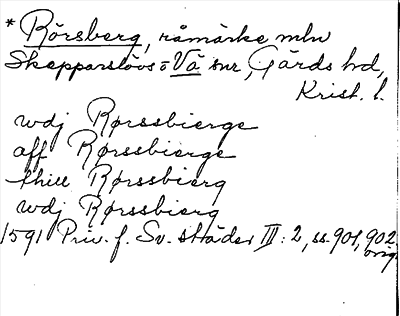 * Rörsberg, råmärke mln
Skepparslövs o Vä snr, Gärds hd,
Krist. l.
wdj Rørssbierge
aff Rørssbierge
thill Rørssbierg
wdj Rørssbierg
1591 Priv. f. Sv. städer III: 2, ss. 901, 902.
orig.